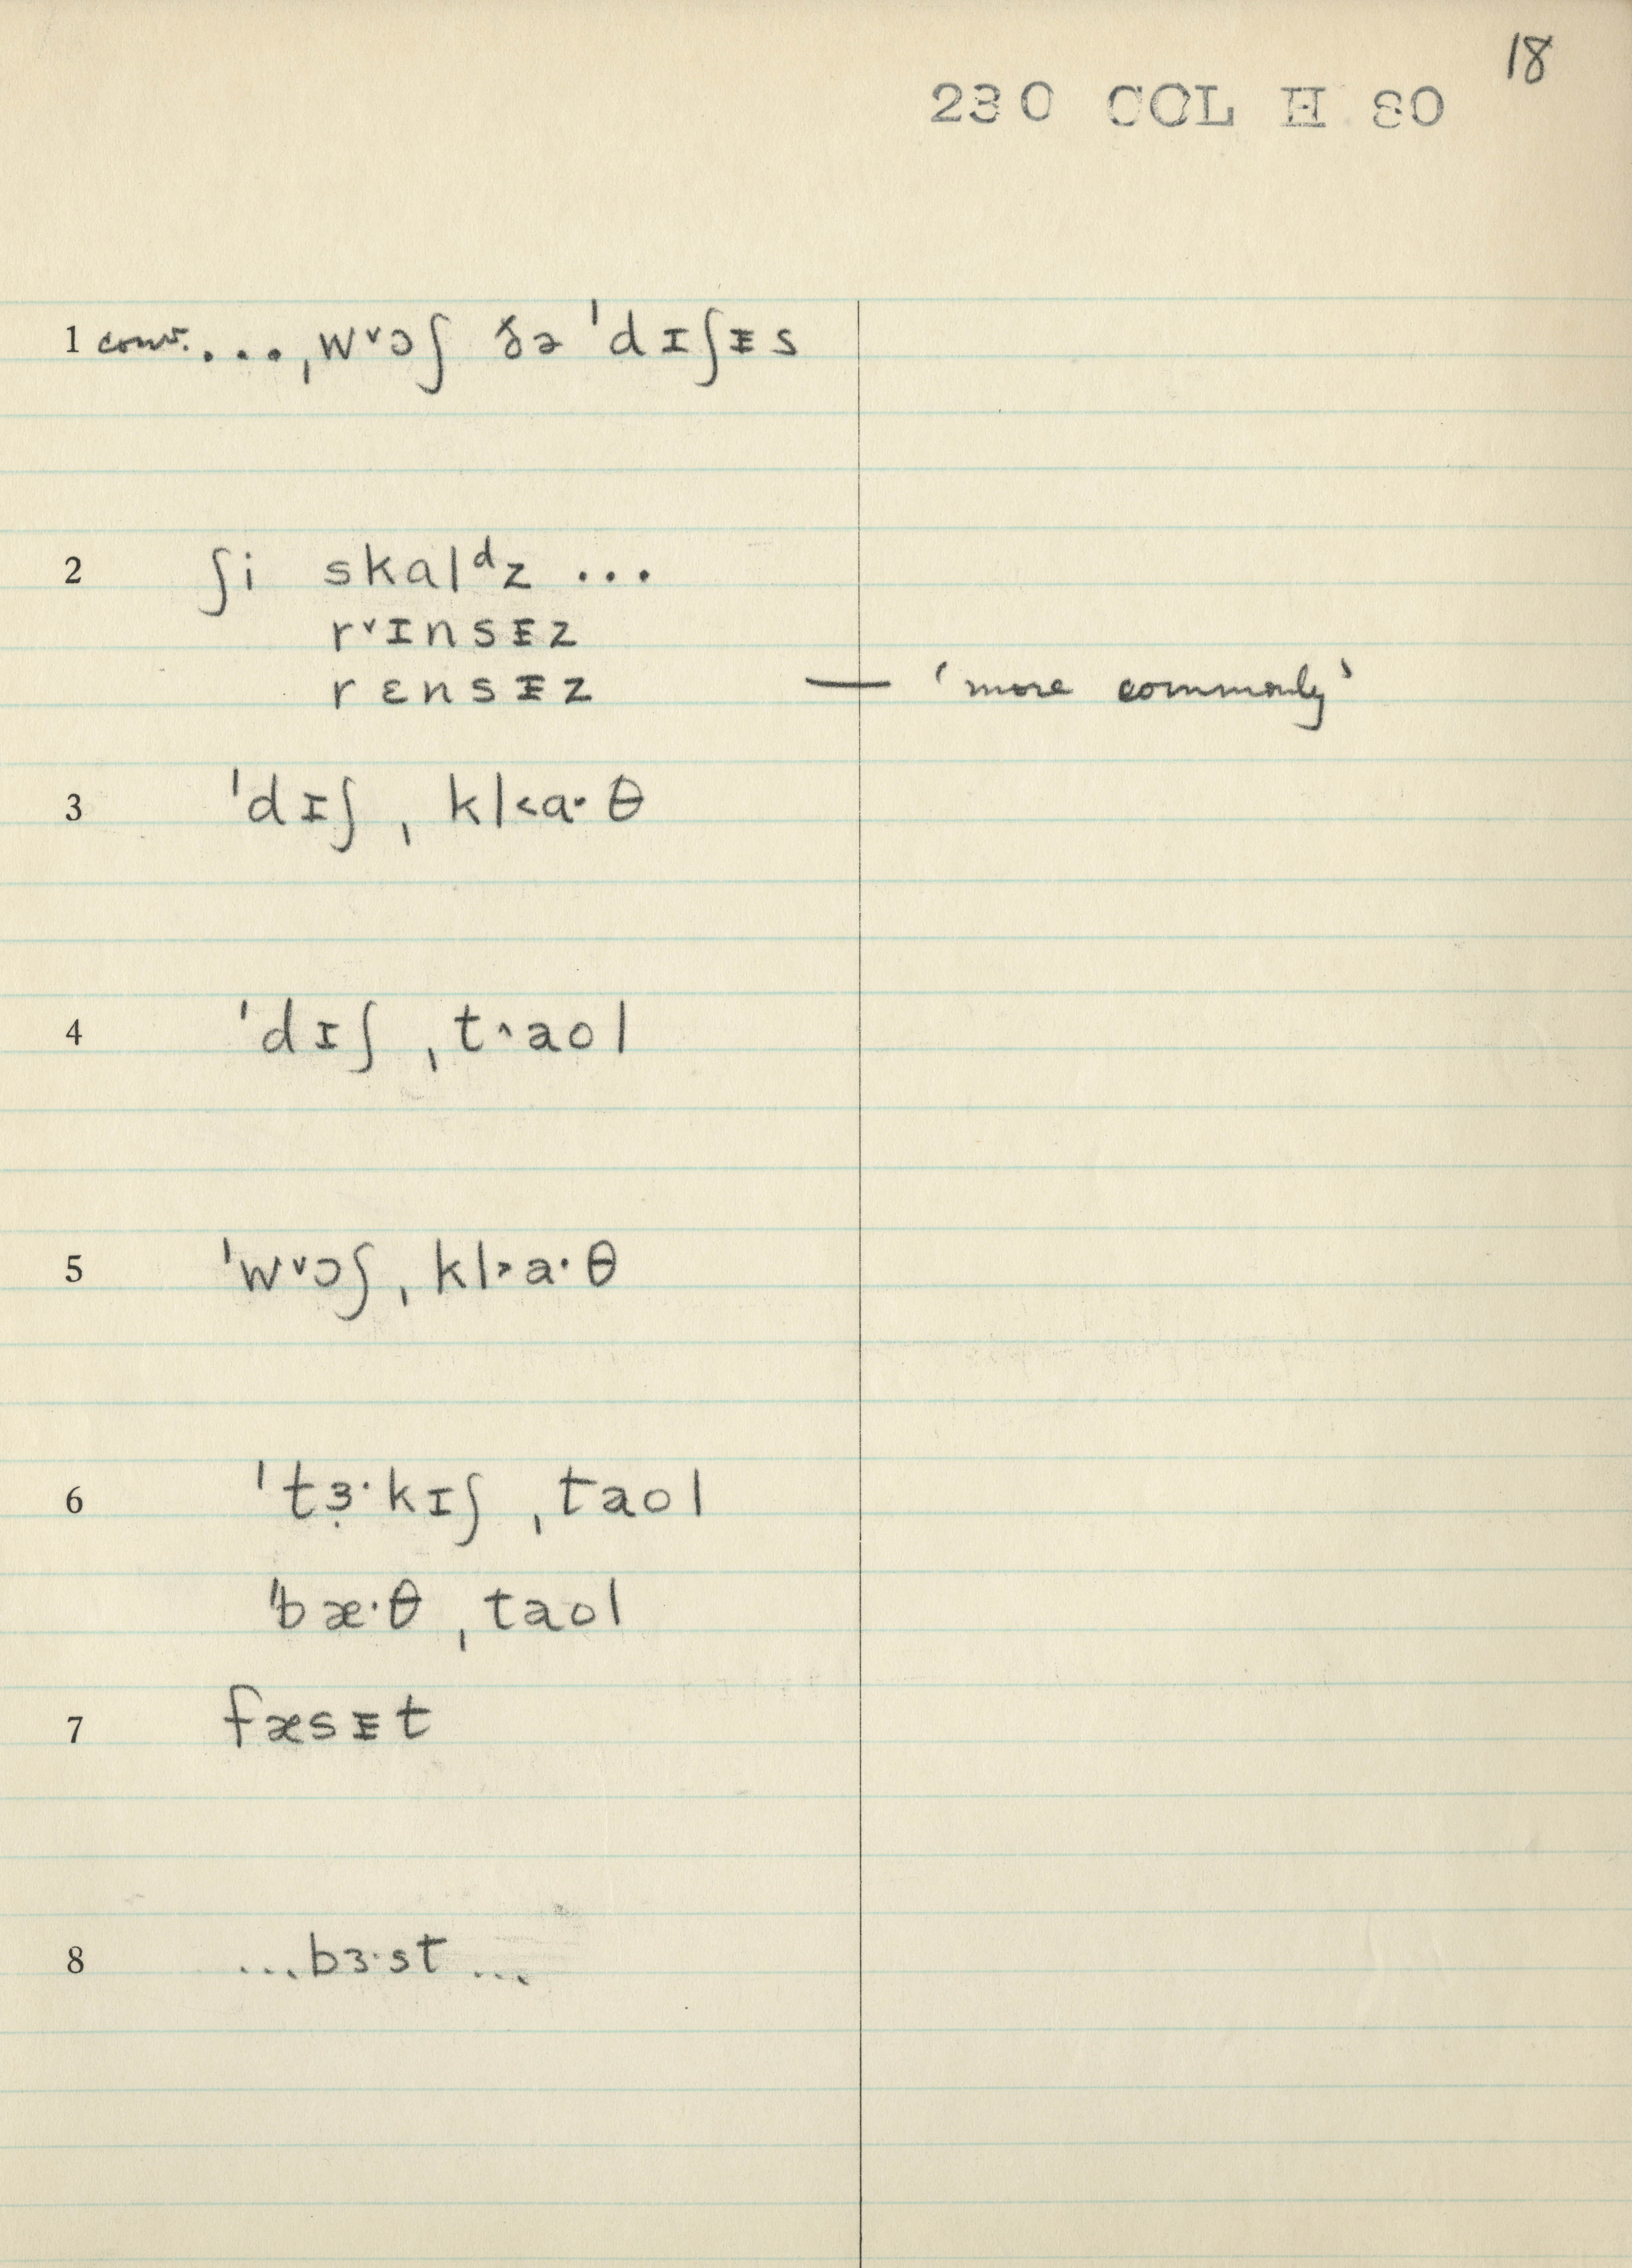 18
230 COL H 80
1 conv. ... ˌw˅ɔʃ ðə ˈdɪʃᵻs
2 ʃi skalᵈz ...
r˅ɪnsᵻz
rɛnsᵻz — 'more commonly'
3 ˈdɪʃ ˌkl˂ɑ·θ
4 ˈdɪʃ ˌt˄aol
5 ˈw˅ɔʃ ˌkl˃a·θ
6 ˈtɜ̣·kɪʃ ˌtaol
ˈbæ·θ ˌtaol
7 fæsᵻt
8 ...bɜ·st...